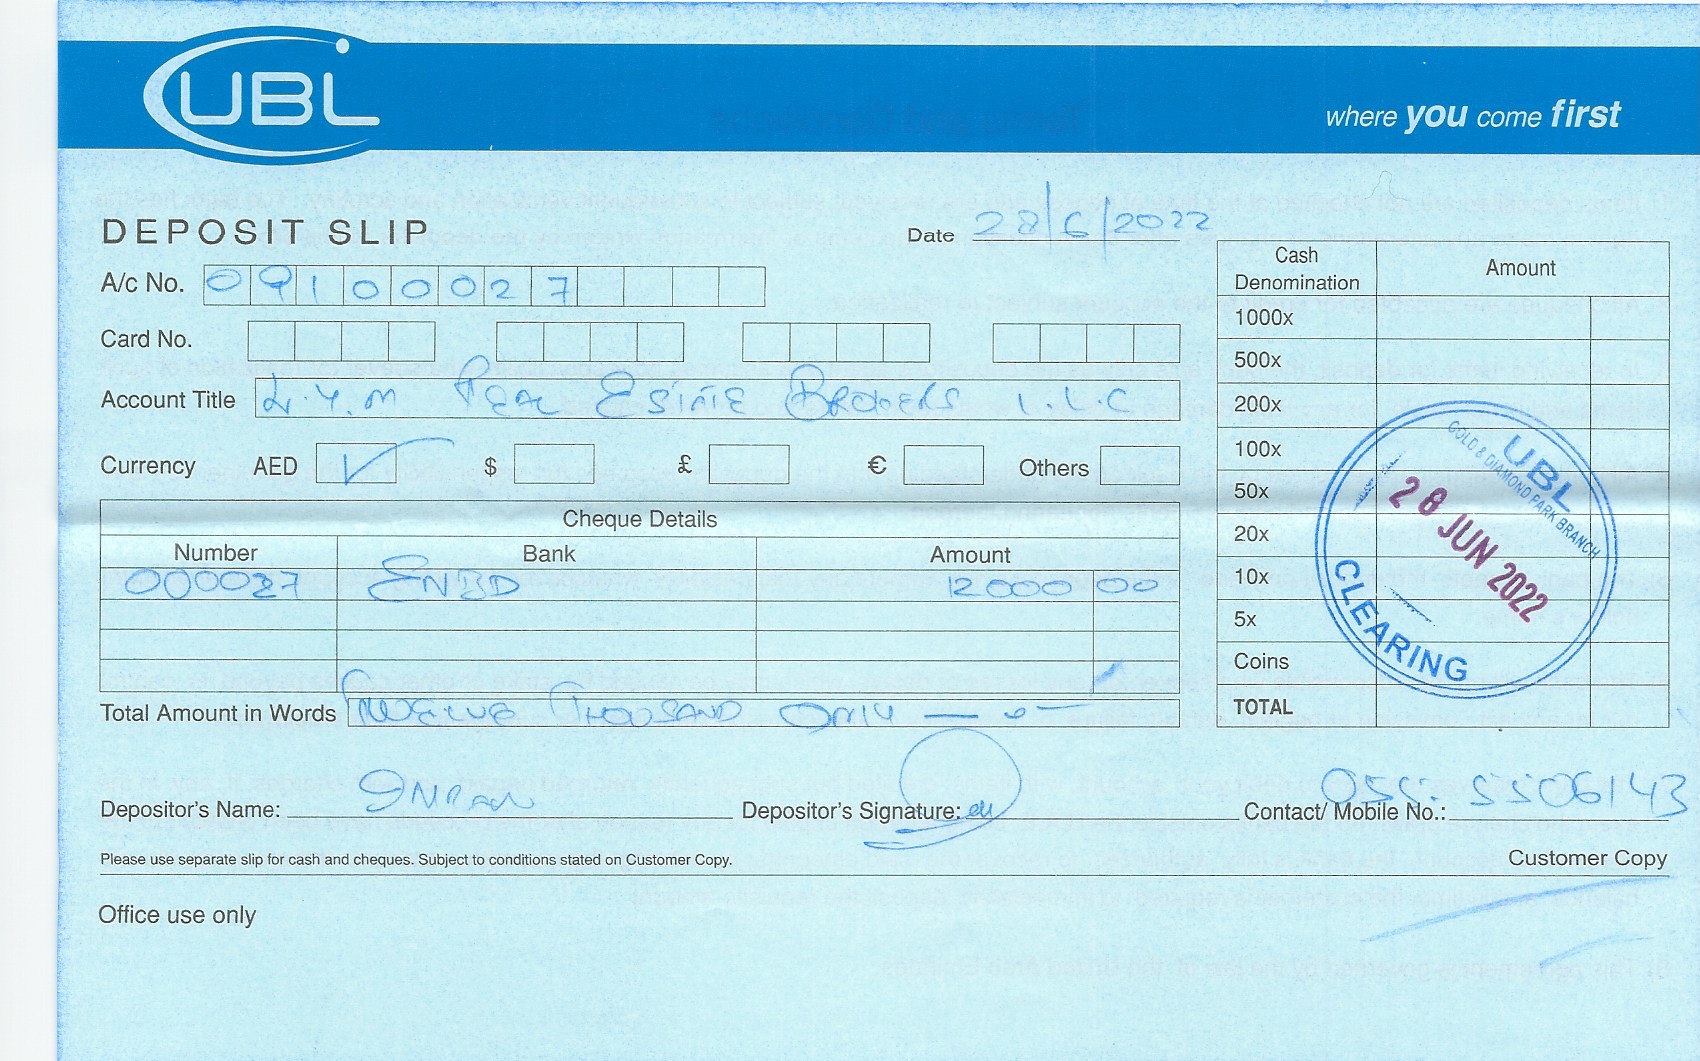 UBL
where you come first
DEPOSIT SLIP
Date 28/6/2022
A/c No. 09100027
Card No.
Account Title L.Y.M REAL ESTATE BROKERS L.L.C
Currency AED $ £ € Others
Cheque Details
Number Bank Amount
000027 ENBD 12000 00
Total Amount in Words TWELVE THOUSAND ONLY
Cash Denomination Amount
1000x
500x
200x
100x
50x
20x
10x
5x
Coins
TOTAL
UBL
GOLD & DIAMOND PARK BRANCH
28 JUN 2022
CLEARING
Depositor's Name:
Depositor's Signature:
Contact/ Mobile No.: 055-5506143
Please use separate slip for cash and cheques. Subject to conditions stated on Customer Copy.
Customer Copy
Office use only